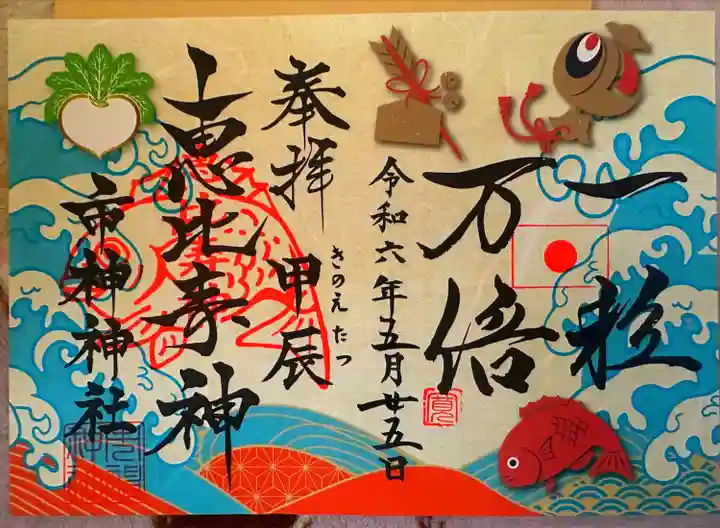 一粒
万倍
令和六年五月廿五日
きのえたつ
甲辰
奉拝
恵比寿神
市神神社